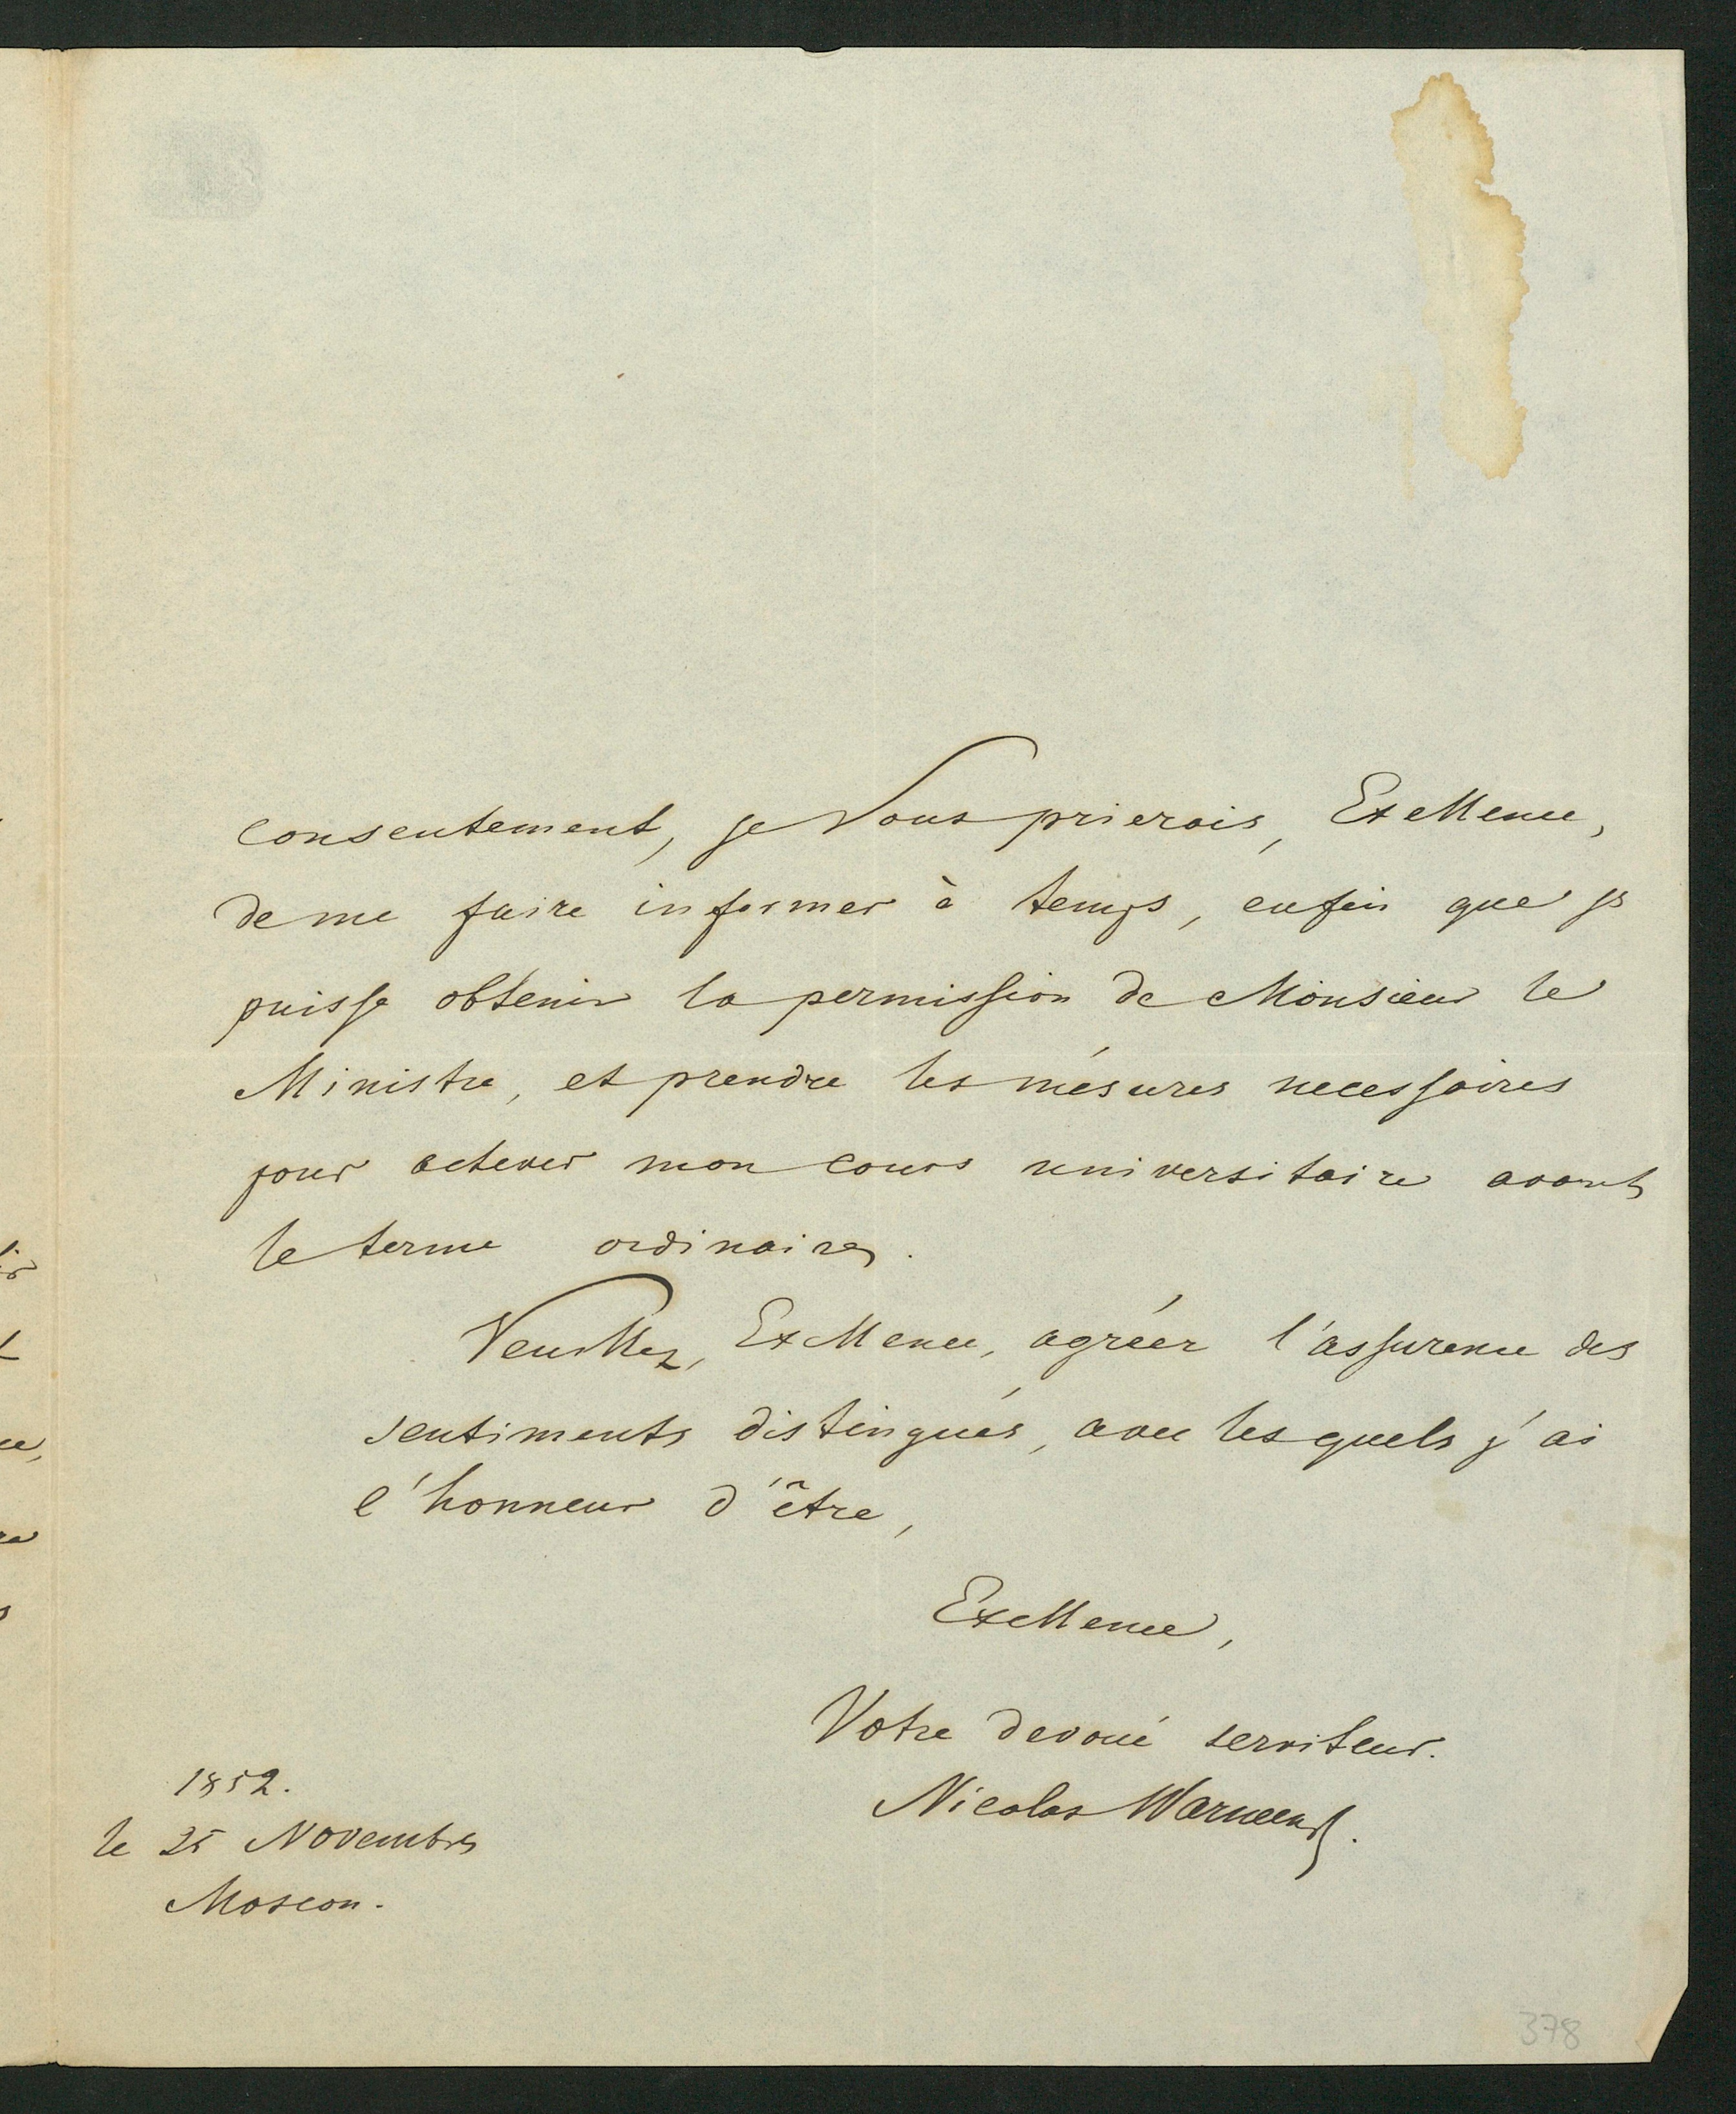 consentement, je Vous prierais, Exellence,
de me faire informer à temps, enfin que je
puisse obtenir la permission de Monsieur le
Ministre, et prendre les mésures necessaires
pour achever mon cours universitaire avant
le terme ordinaire.
Veuillez, Exellence, agréer l'assurence des
sentiments distingués, avec les quels j'ai
l'honneur d'être,
Exellence,
Votre devoué serviteur.
Nicolas Warneck.
1852.
le 25 Novembre
Moscou.
378